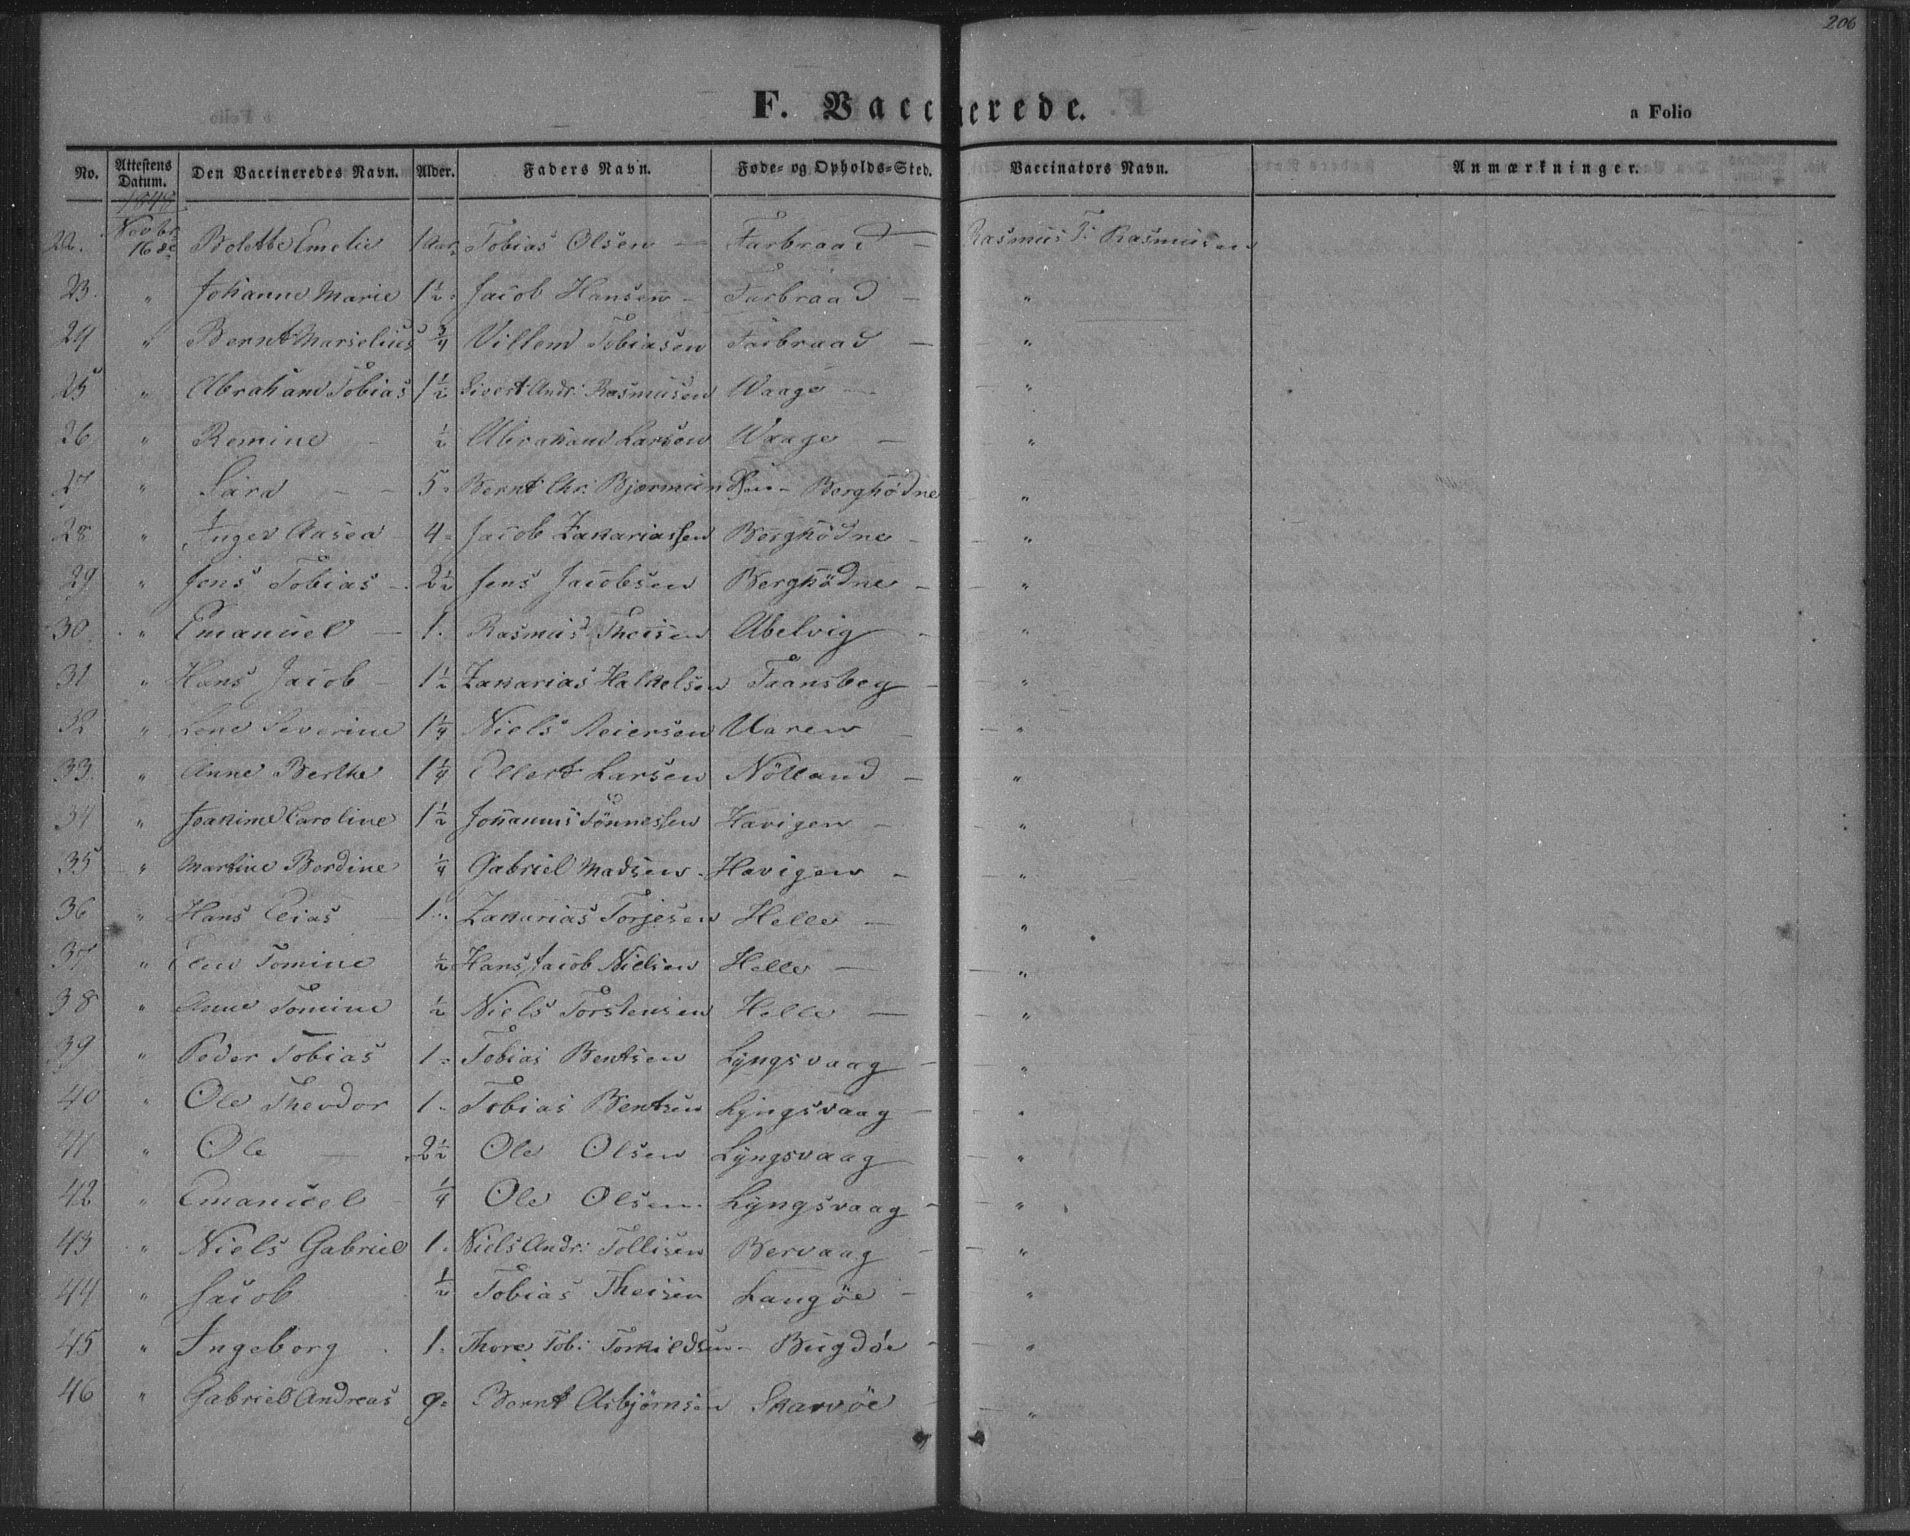 206
F. Vaccinerede.
a Folio
No. Attestens Datum. Den Vaccineredes Navn. Alder. Faders Navn. Føde- og Opholds-Sted. Vaccinators Navn. Anmærkninger.
Novbr
22. 16de Bolette Emelie 1 Aar Tobias Olsen — Farbraad — Rasmus T. Rasmusen
23. " Johanne Marie 1½ Jacob Hansen — Farbraad — "
24 " Bernt Marselius ¾ Villem Tobiasen Farbraad — "
25 " Abraham Tobias 1½ Sivert Andr: Rasmusen Waage — "
26 " Remine — ½ Abraham Larsen Waage — "
27 " Sara — 5 Bernt Chr: Berghødne "
28 " Inger Aasea 4 Jacob Zakariassen Berghødne — "
29 " Jens Tobias — 2½ Jens Jacobsen Berghødne — "
30. " Emanuel — 1. Rasmus Theisen Abelvig — "
31 " Hans Jacob — 1½ Zakarias Halkelsen Taansbeg — "
32 " Lene Severine 1¼ Niels Reiersen Uaren — "
33. " Anne Berthe 1¼ Ellert Larsen Nölland — "
34 " Joakime Caroline 1½ Johannes Tönnessen Havigen — "
35 " Martine Berdine ¼ Gabriel Madsen Havigen — "
36 " Hans Elias — 1 Zakarias Torjesen Helle — "
37 " Elen Tomine ½ Hans Jacob Nielsen Helle — "
38 " Anne Tomine ½ Niels Torstensen Helle — "
39 " Peder Tobias 1 Tobias Bentsen Lyngsvaag — "
40 " Ole Theodor 1 Tobias Bentsen Lyngsvaag — "
41 " Ole — 2½ Ole Olsen Lyngsvaag — "
42 " Emanuel — ¼ Ole Olsen Lyngsvaag — "
43 " Niels Gabriel 1. Niels Andr: Tollisen Bervaag — "
44 " Jacob ½ Tobias Theisen Langöe — "
45 " Ingeborg 1. Thore Tob: Torkildsen Bugdöe — "
46 " Gabriel Andreas 9 Bernt Asbjørnsen Skarvöe "